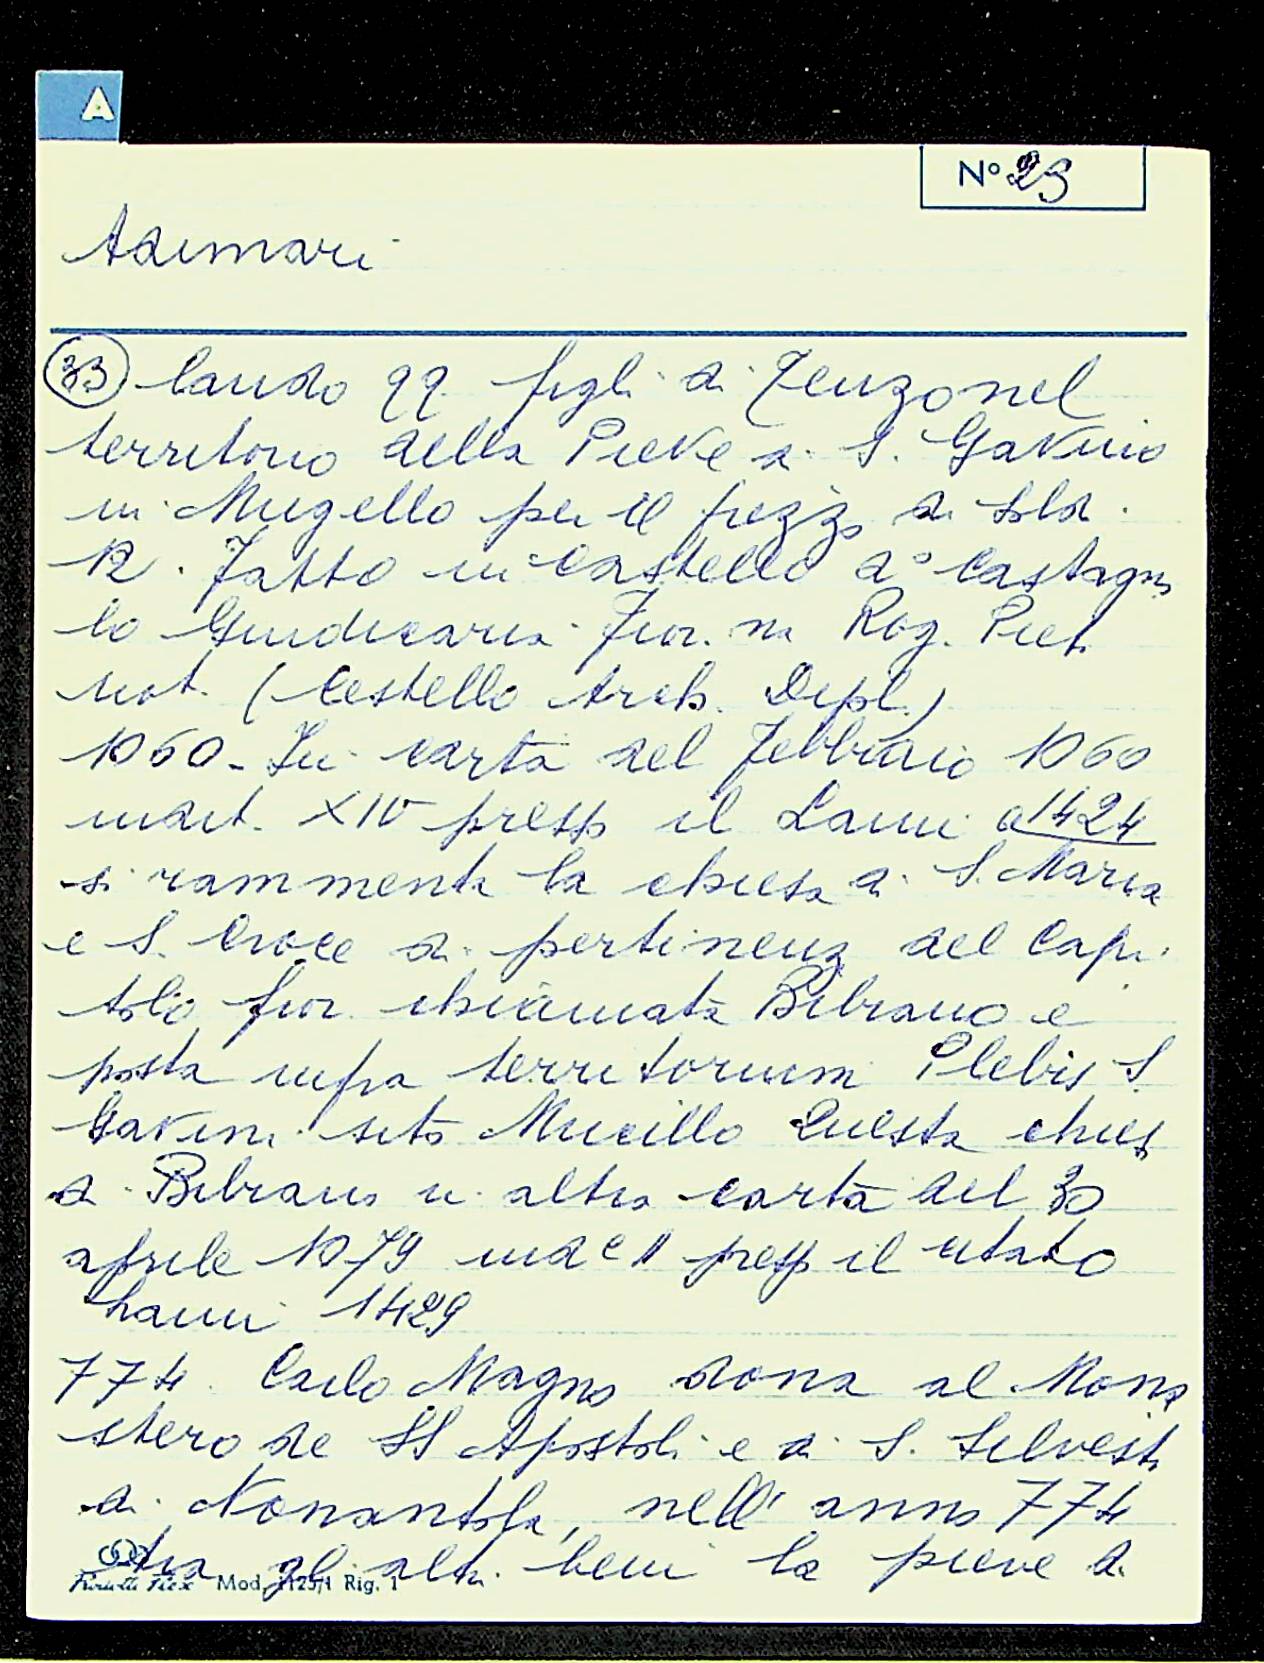 A
N° 23
Adimari
33 landо qq. figli di Teuzo nel
territorio della Pieve di S. Gavino
in Mugello per il prezzo di sold.
12. Fatto in Castello d° Castagno
lo Giudicaria Fior. na Rog. Piet.
not. (Cestello Arch. Dipl.)
1060 - In carta del febbraio 1060
indict. XIV presso il Lami a 1424
si rammenta la chiesa di S. Maria
e S. Croce di pertinenz del Capi
tolo fior. chiamata Bibrano e
posta infra territorium Plebis S.
Gavini sito Mucillo Questa chies
di Bibrano in altra carta del 30
aprile 1079 ind e II presso il citato
Lami 1429
774. Carlo Magno dona al Mona
stero de SS Apostoli e di S. Silvest.
di Nonantola, nell' anno 774
tra gli altri beni la pieve di
Mod. 125/1 Rig. 1